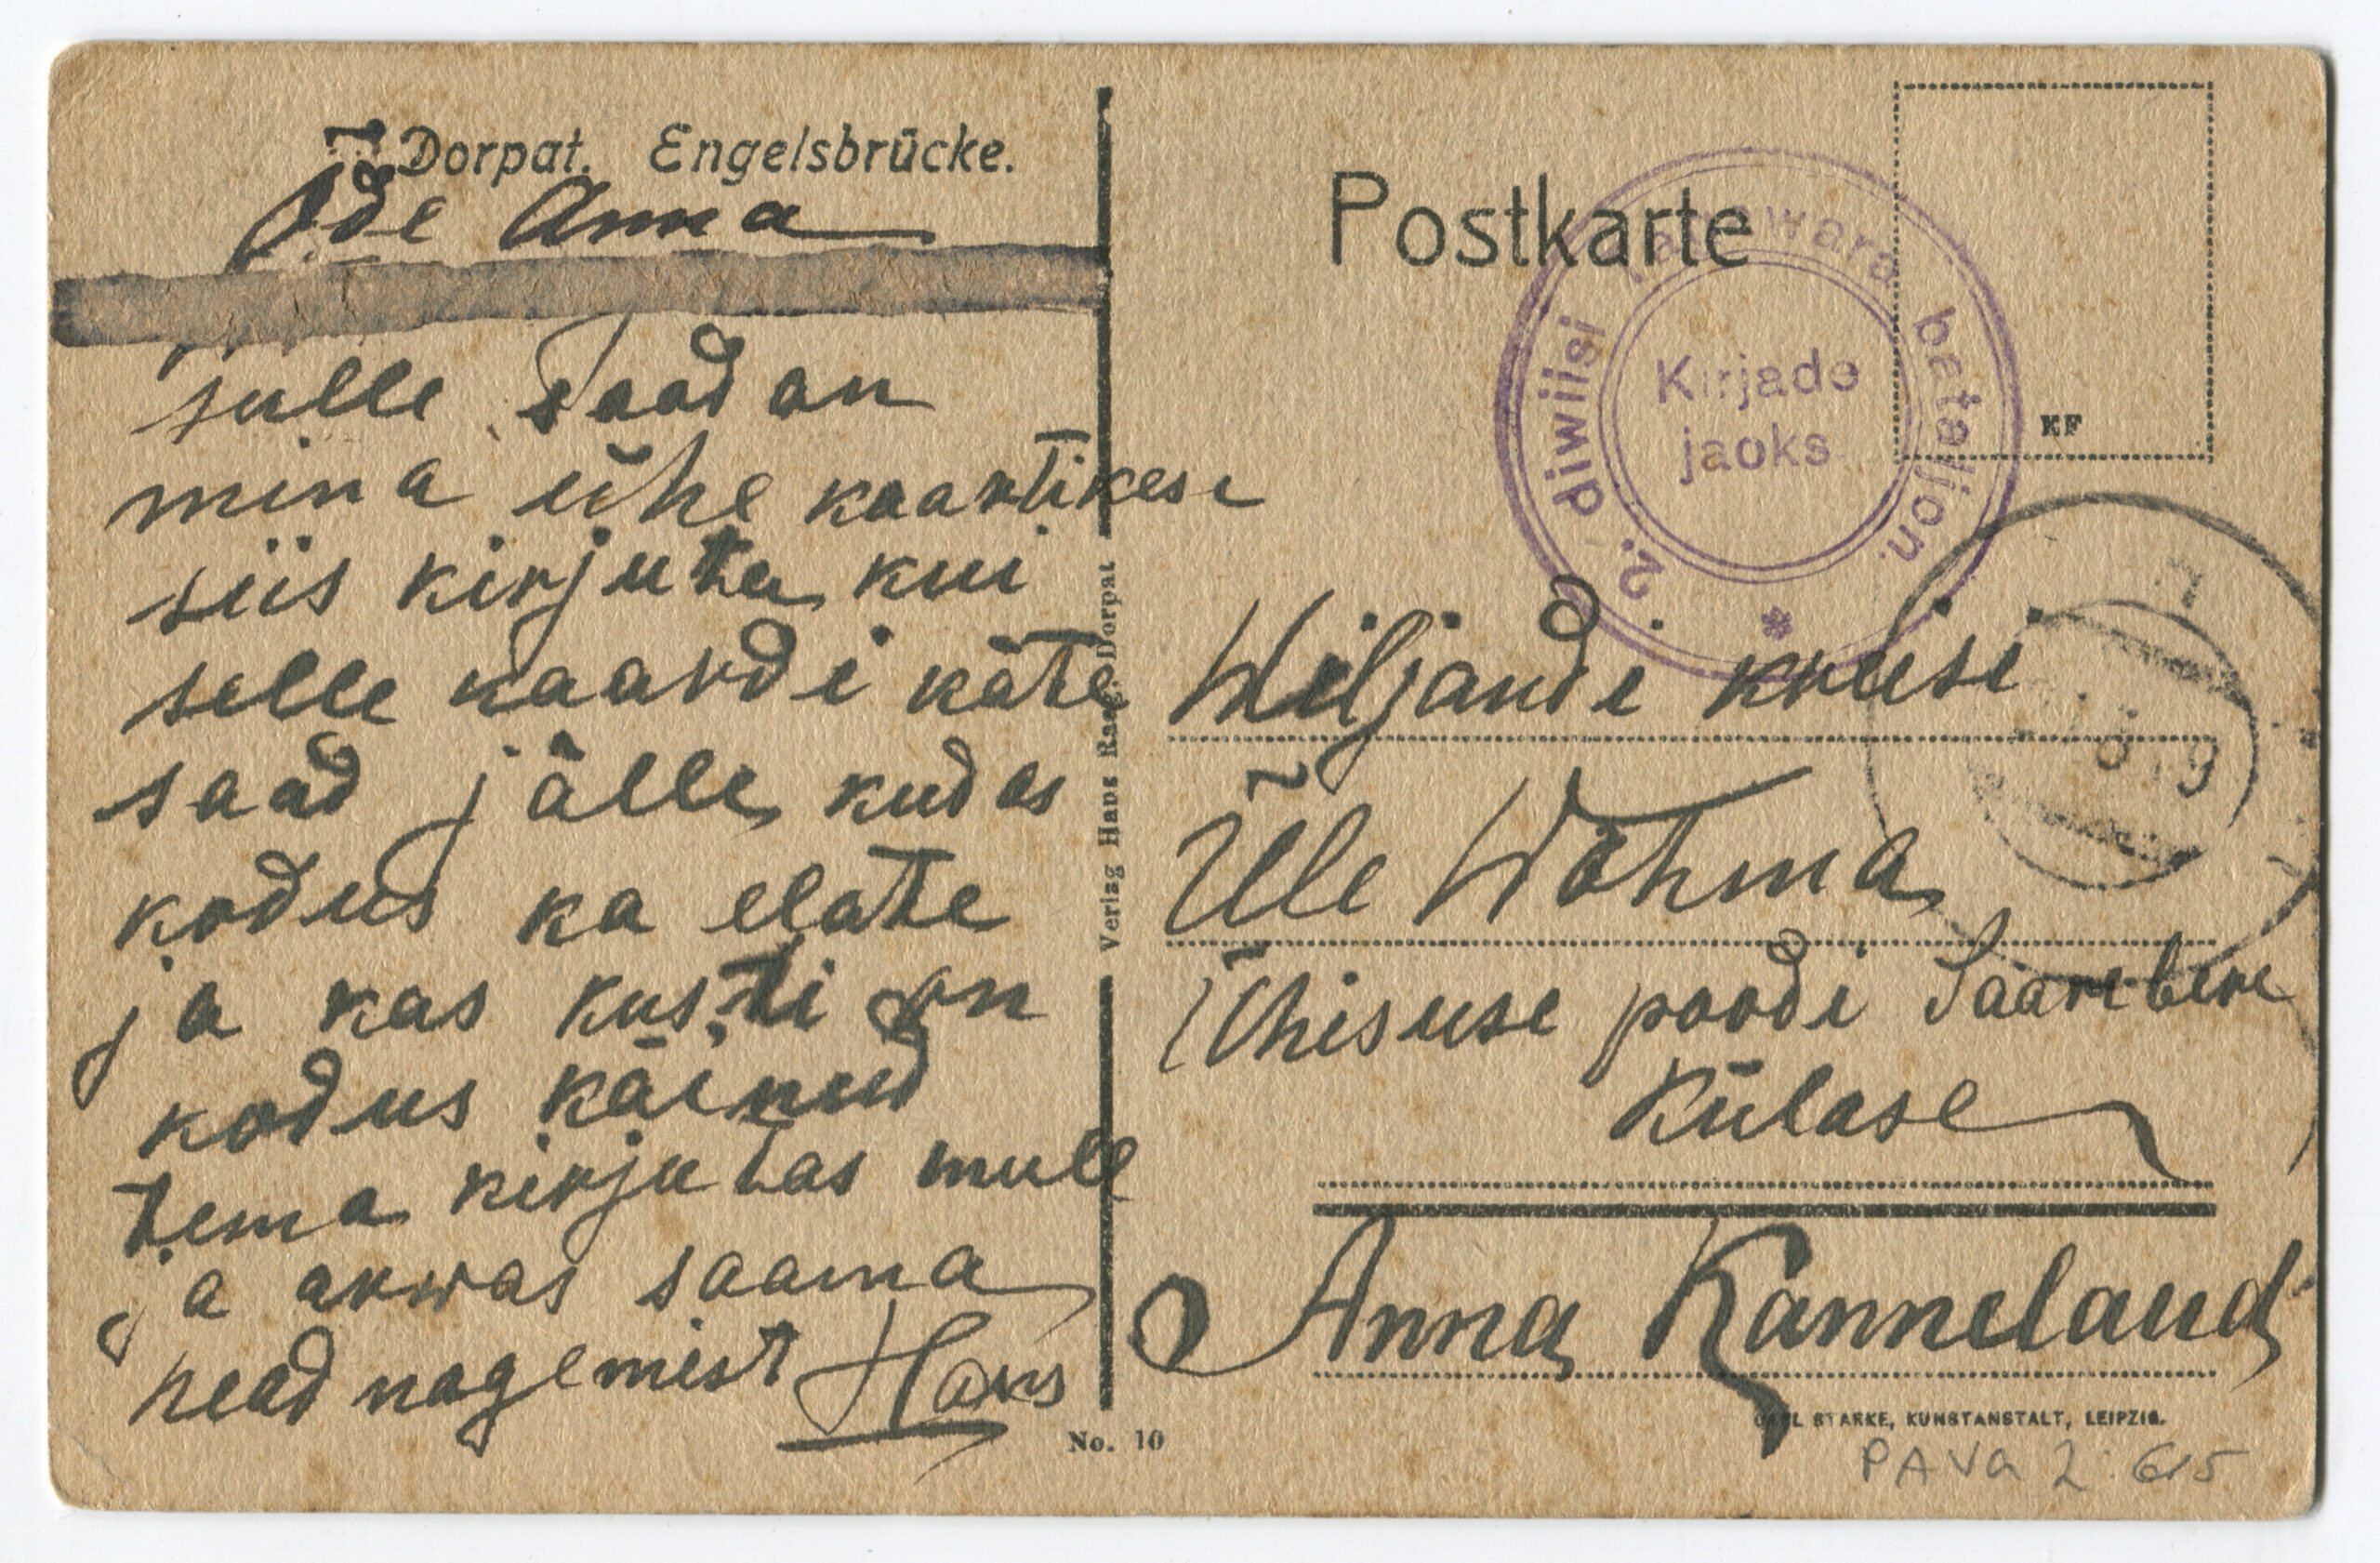 Dorpat. Engelsbrücke.
Õde Anna
sulle saadan
mina ühe kaartikese
siis kirjuta kui
selle kaardi käte
saad jälle kudas
kodus ka elate
ja kas kusti on
kodus käinud
tema kirjutas mule
ja arwas saama
head nägemist Hans
Verlag Hans Raag, Dorpat
No. 10
Postkarte
2. diwiisi tagawara bataljon.
Kirjade
jaoks
KF
Wiljandi kreisi
Üle Wõhma
Ühisuse poodi Saarebere
Külase
Anna Kanneland
CARL STARKE, KUNSTANSTALT, LEIPZIG.
PAVa 2:615